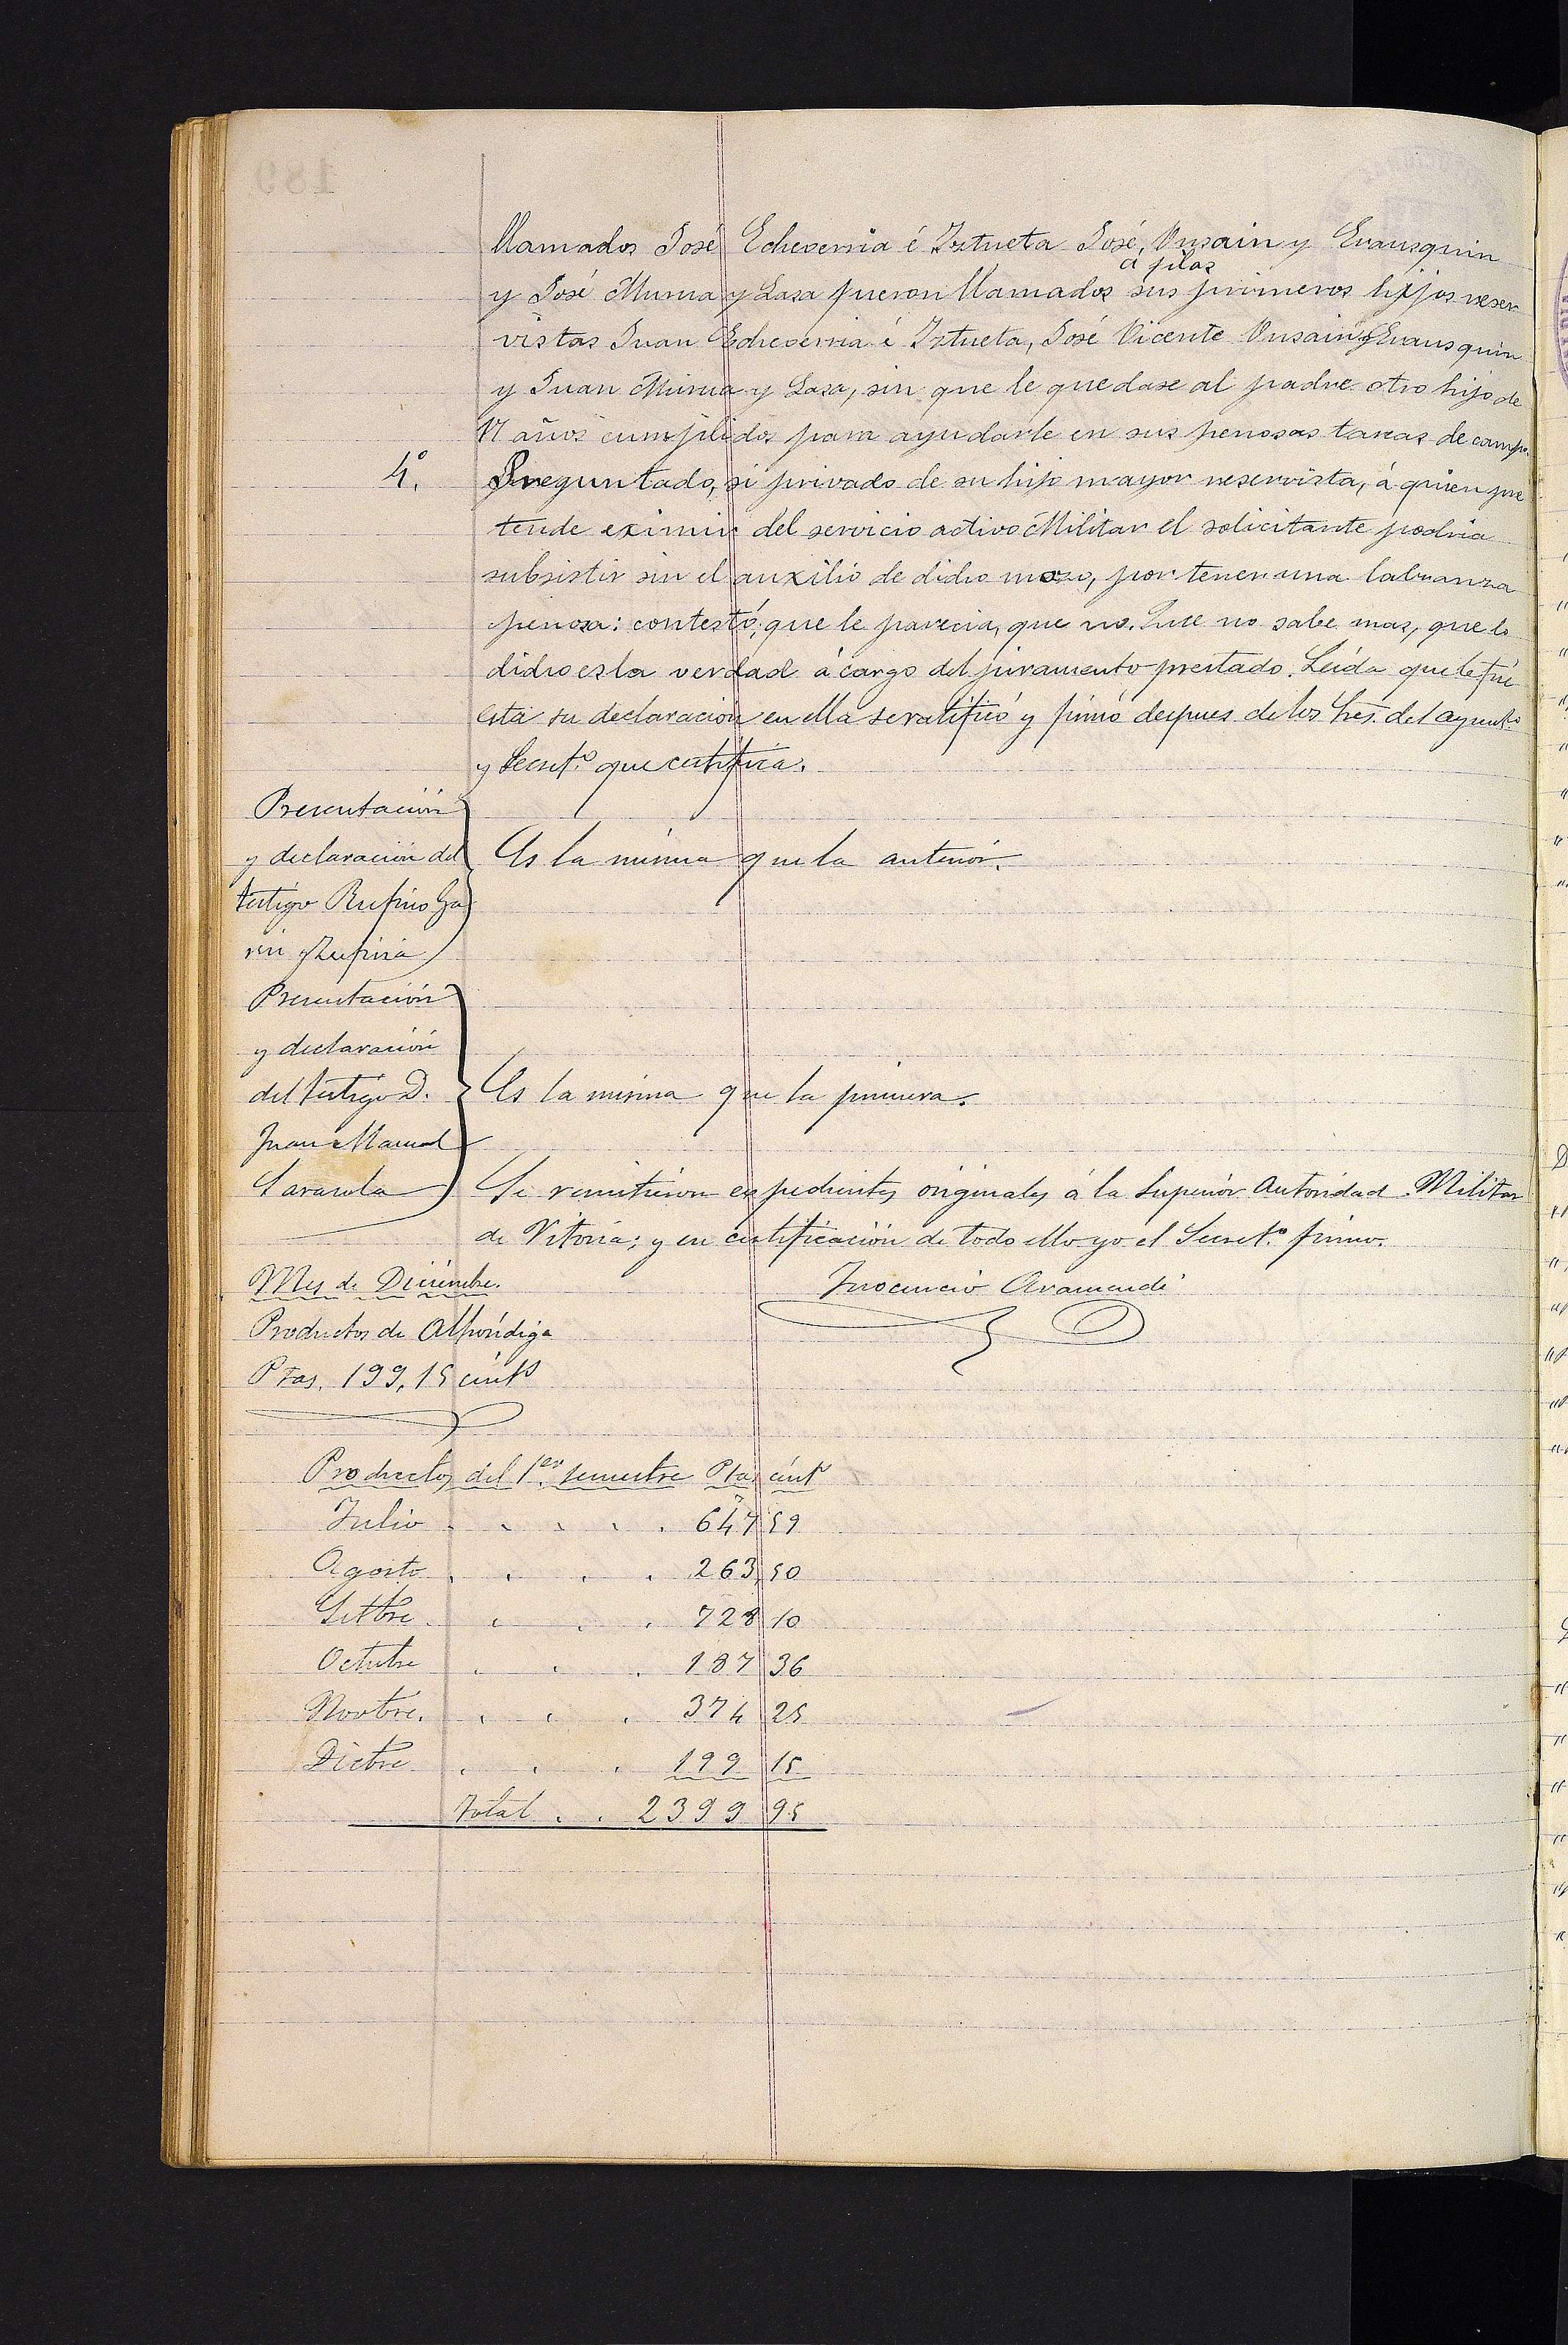 llamados José Echeverria é Iztueta José, Unsain y Erausquin
á filas
y José Murua y Lasa fueron llamados sus primeros hijos reser-
vistas Juan Echeverria é Iztueta, José Vicente Unsain y Erausquin
y Juan Murua y Lasa, sin que le quedase al padre otro hijo de
17 años cumplidos para ayudarle en sus penosas tareas de campo.
4.º Preguntado, si privado de su hijo mayor reservista, á quien pre
tende eximir del servicio activo Militar el solicitante podria
subsistir sin el auxilio de dicho mozo, por tener una labranza
penosa: contestó; que le parecia, que no. Que no sabe mas, que lo
dicho es la verdad á cargo del juramento prestado. Leida que le fué
esta su declaración en ella se ratificó y firmó despues de los Sres. del ayunt.º
y Secret.º que certifica.
Presentación
y declaración del
testigo Rufino Ga
rin y Zufiria
Es la misma que la anterior.
Presentación
y declaración
del testigo D.
Juan Manuel
Sarasola
Es la misma que la primera.
Se remitieron expedientes originales á la Superior Autoridad Militar
de Vitoria; y en certificación de todo ello yo el Secret.º firmo.
Inocencio Aramendi
Mes de Diciembre.
Productos de Alhóndiga
Ptas. 199,15 cénts
Productos del 1.er semestre Ptas cénts
Julio . . . . . 647 59
Agosto . . . . 263,50
Setbre . . . . 728 10
Octubre . . . 187 36
Novbre. . . . 374 25
Dicbre . . . 199 15
Total . . 2399 95
189